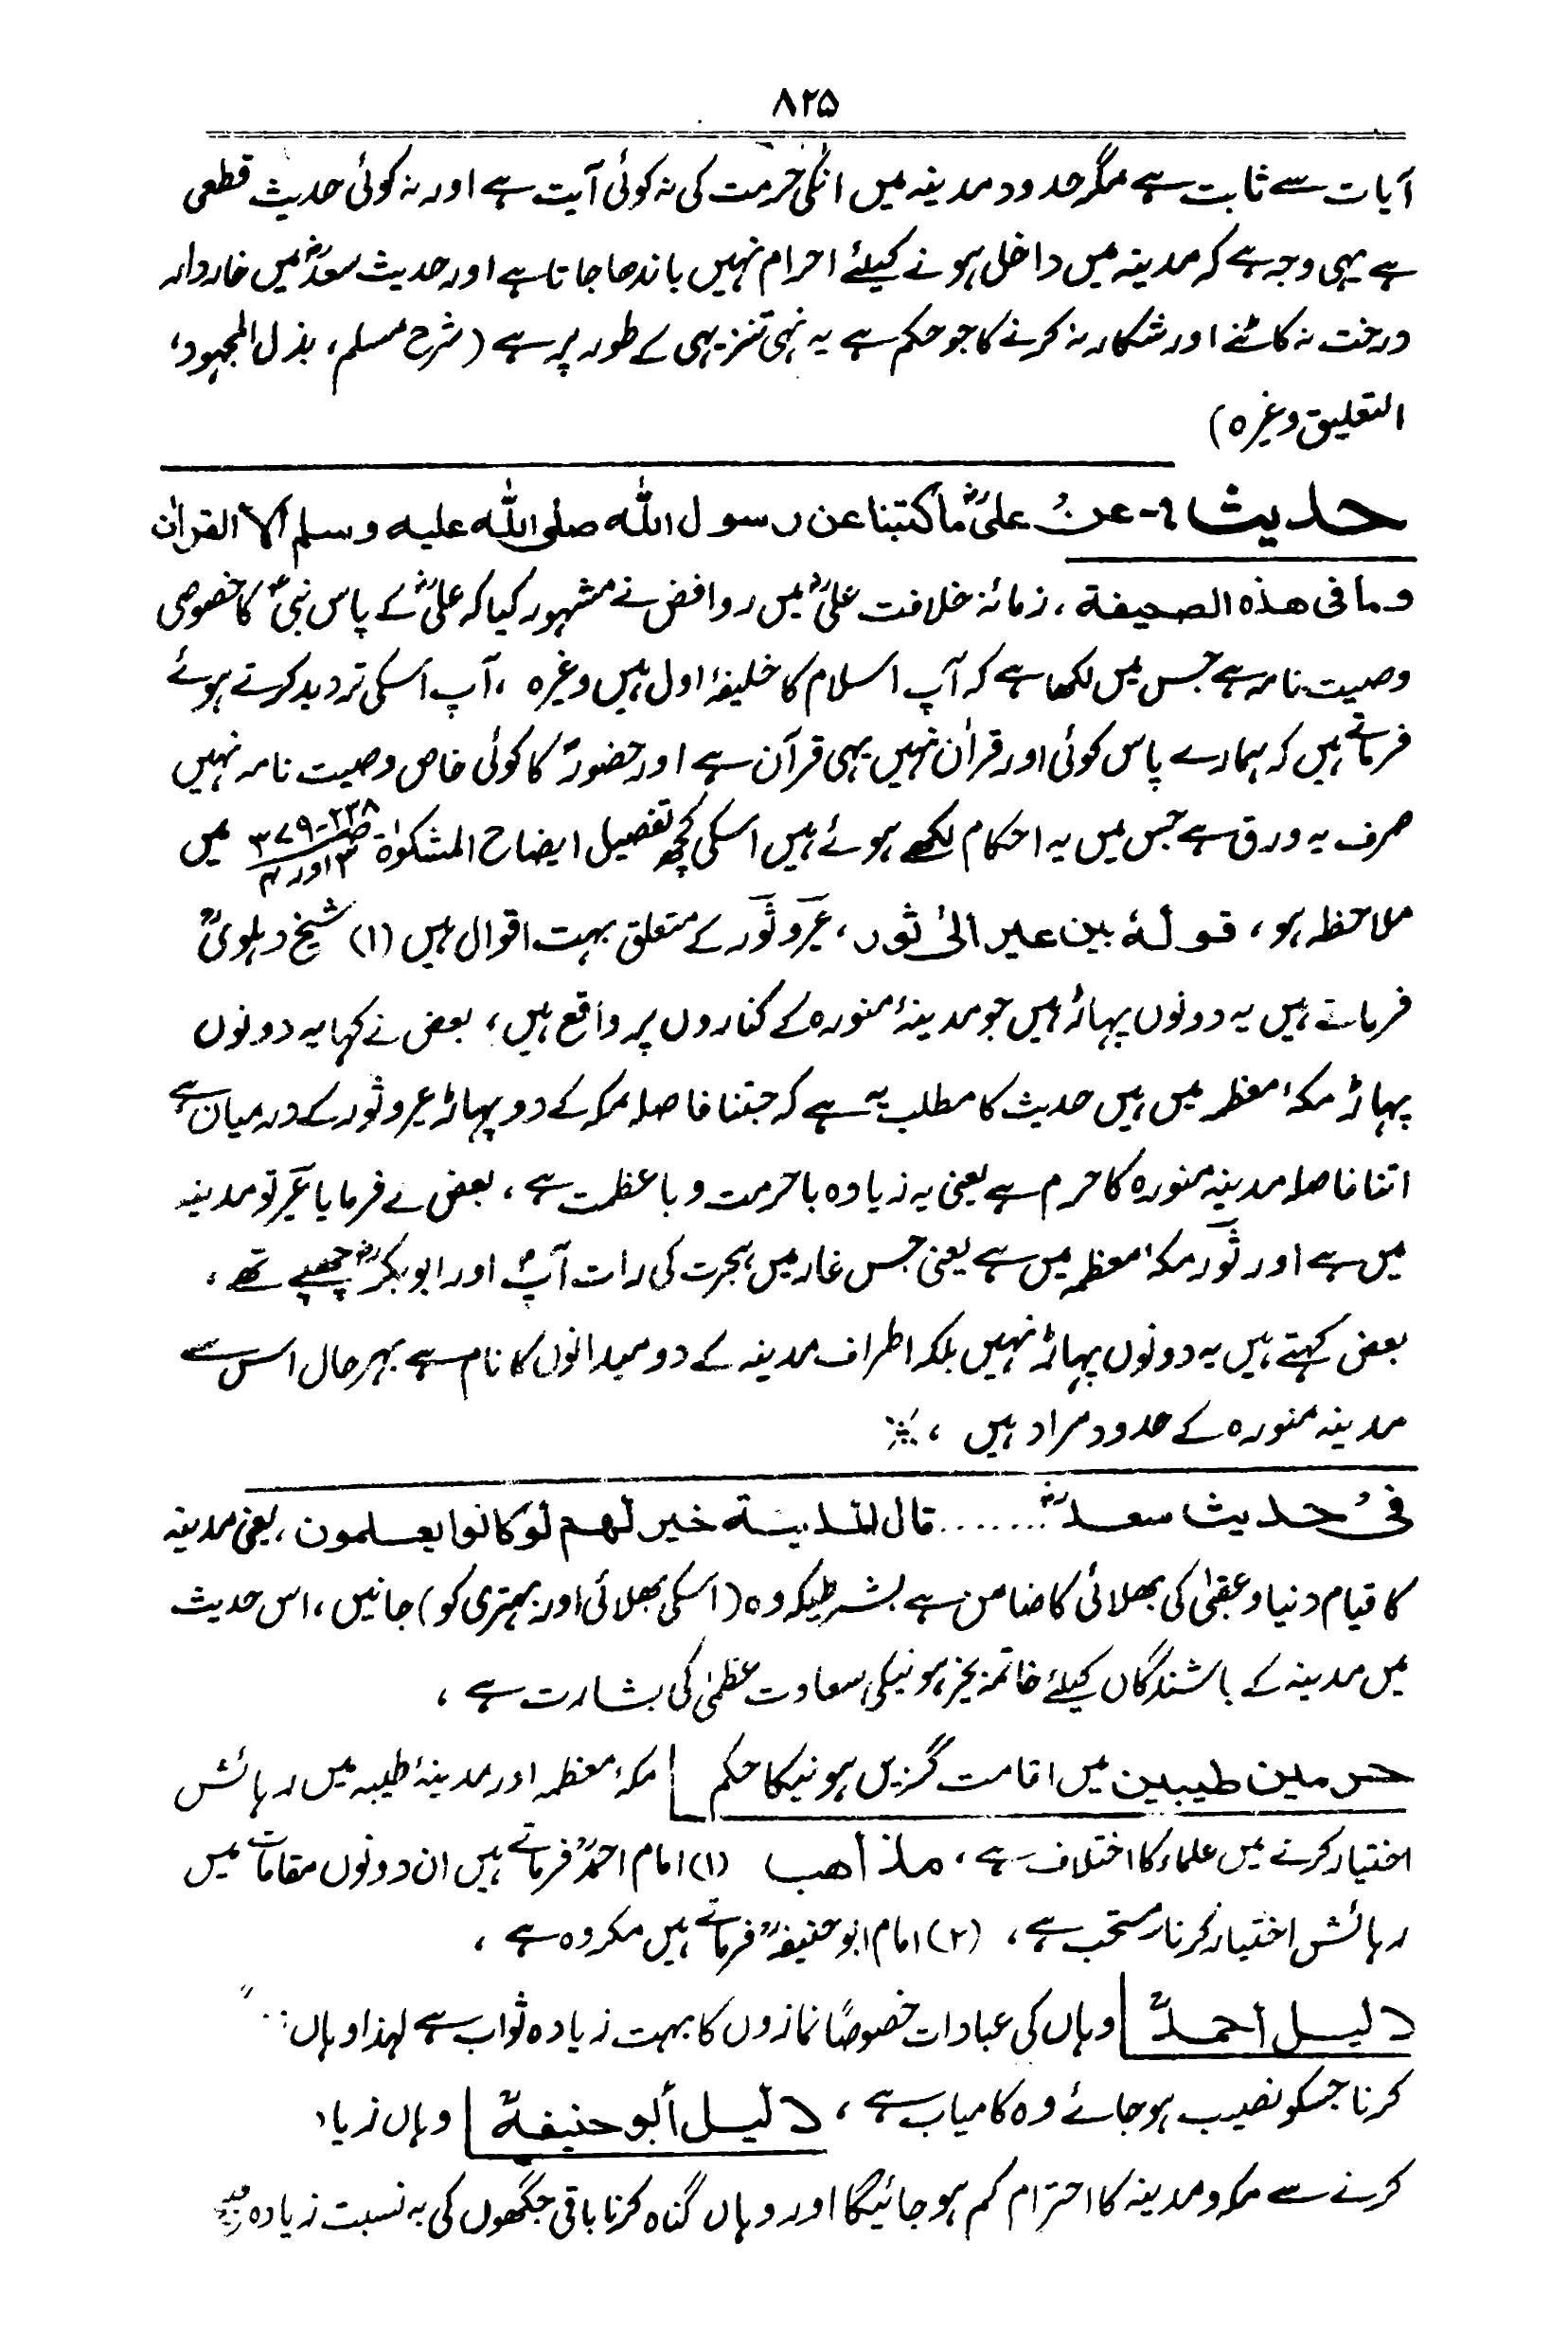 ۸۲۵
آیات سے ثابت ہے مگر حدود مدینہ میں انکی حرمت کی نہ کوئی آیت ہے اور نہ کوئی حدیث قطعی
ہے یہی وجہ ہے کہ مدینہ میں داخل ہونے کیلئے احرام نہیں باندھا جاتا ہے اور حدیث سعدؓ میں خاردار
درخت نہ کاٹنے اور شکار نہ کرنے کا جو حکم ہے یہ نہی تنزیہی کے طور پر ہے (شرح مسلم، بذل المجہود،
التعلیق وغیرہ)
حدیث :- عن علیؓ ما کتبنا عن رسول اللّٰه صلی اللّٰه علیه وسلم الا القراٰن
وما فی هذه الصحیفة، زمانۂ خلافت علیؓ میں روافض نے مشہور کیا کہ علیؓ کے پاس نبیؐ کا خصوصی
وصیت نامہ ہے جس میں لکھا ہے کہ آپ اسلام کا خلیفۂ اول ہیں وغیرہ ، آپ اسکی تردید کرتے ہوئے
فرماتے ہیں کہ ہمارے پاس کوئی اور قراٰن نہیں یہی قرآن ہے اور حضورؐ کا کوئی خاص وصیت نامہ نہیں
صرف یہ ورق ہے جس میں یہ احکام لکھے ہوئے ہیں اسکی کچھ تفصیل ایضاح المشکوٰۃ میں
ملاحظہ ہو، قوله بین عیر الیٰ ثور، عَیر و ثَور کے متعلق بہت اقوال ہیں (۱) شیخ دہلویؒ
فرماتے ہیں یہ دونوں پہاڑ ہیں جو مدینۂ منورہ کے کناروں پر واقع ہیں، بعض نے کہا یہ دونوں
پہاڑ مکۂ معظمہ میں ہیں حدیث کا مطلب یہ ہے کہ جتنا فاصلہ مکہ کے دو پہاڑ عیر و ثور کے درمیان ہے
اتنا فاصلہ مدینہ منورہ کا حرم ہے یعنی یہ زیادہ باحرمت و باعظمت ہے ، بعض نے فرمایا عَیر تو مدینہ
میں ہے اور ثَور مکۂ معظمہ میں ہے یعنی جس غار میں ہجرت کی رات آپؐ اور ابوبکرؓ چھپے تھے ،
بعض کہتے ہیں یہ دونوں پہاڑ نہیں بلکہ اطراف مدینہ کے دو میدانوں کا نام ہے بہرحال اس سے
مدینہ منورہ کے حدود مراد ہیں ،
فی حدیث سعدؓ ....... قال المدینة خیر لهم لو کانوا یعلمون ، یعنی مدینہ
کا قیام دنیا و عقبیٰ کی بھلائی کا ضامن ہے بشرطیکہ وہ (اسکی بھلائی اور بہتری کو) جانیں ، اس حدیث
میں مدینہ کے باشندگاں کیلئے خاتمہ بخیر ہونیکی سعادت عظمیٰ کی بشارت ہے ،
حرمین طیبین میں اقامت گزیں ہونیکا حکم مکۂ معظمہ اور مدینۂ طیبہ میں رہائش
اختیار کرنے میں علماء کا اختلاف ہے ، مذاهب (۱) امام احمدؒ فرماتے ہیں ان دونوں مقامات میں
رہائش اختیار کرنا مستحب ہے ، (۲) امام ابوحنیفہؒ فرماتے ہیں مکروہ ہے ،
دلیل احمدؒ وہاں کی عبادات خصوصًا نمازوں کا بہت زیادہ ثواب ہے لہذا وہاں
کرنا جسکو نصیب ہوجائے وہ کامیاب ہے ، دلیل أبو حنیفةؒ وہاں
کرنے سے مکہ و مدینہ کا احترام کم ہوجائیگا اور وہاں گناہ کرنا باقی جگھوں کی بہ نسبت زیادہ